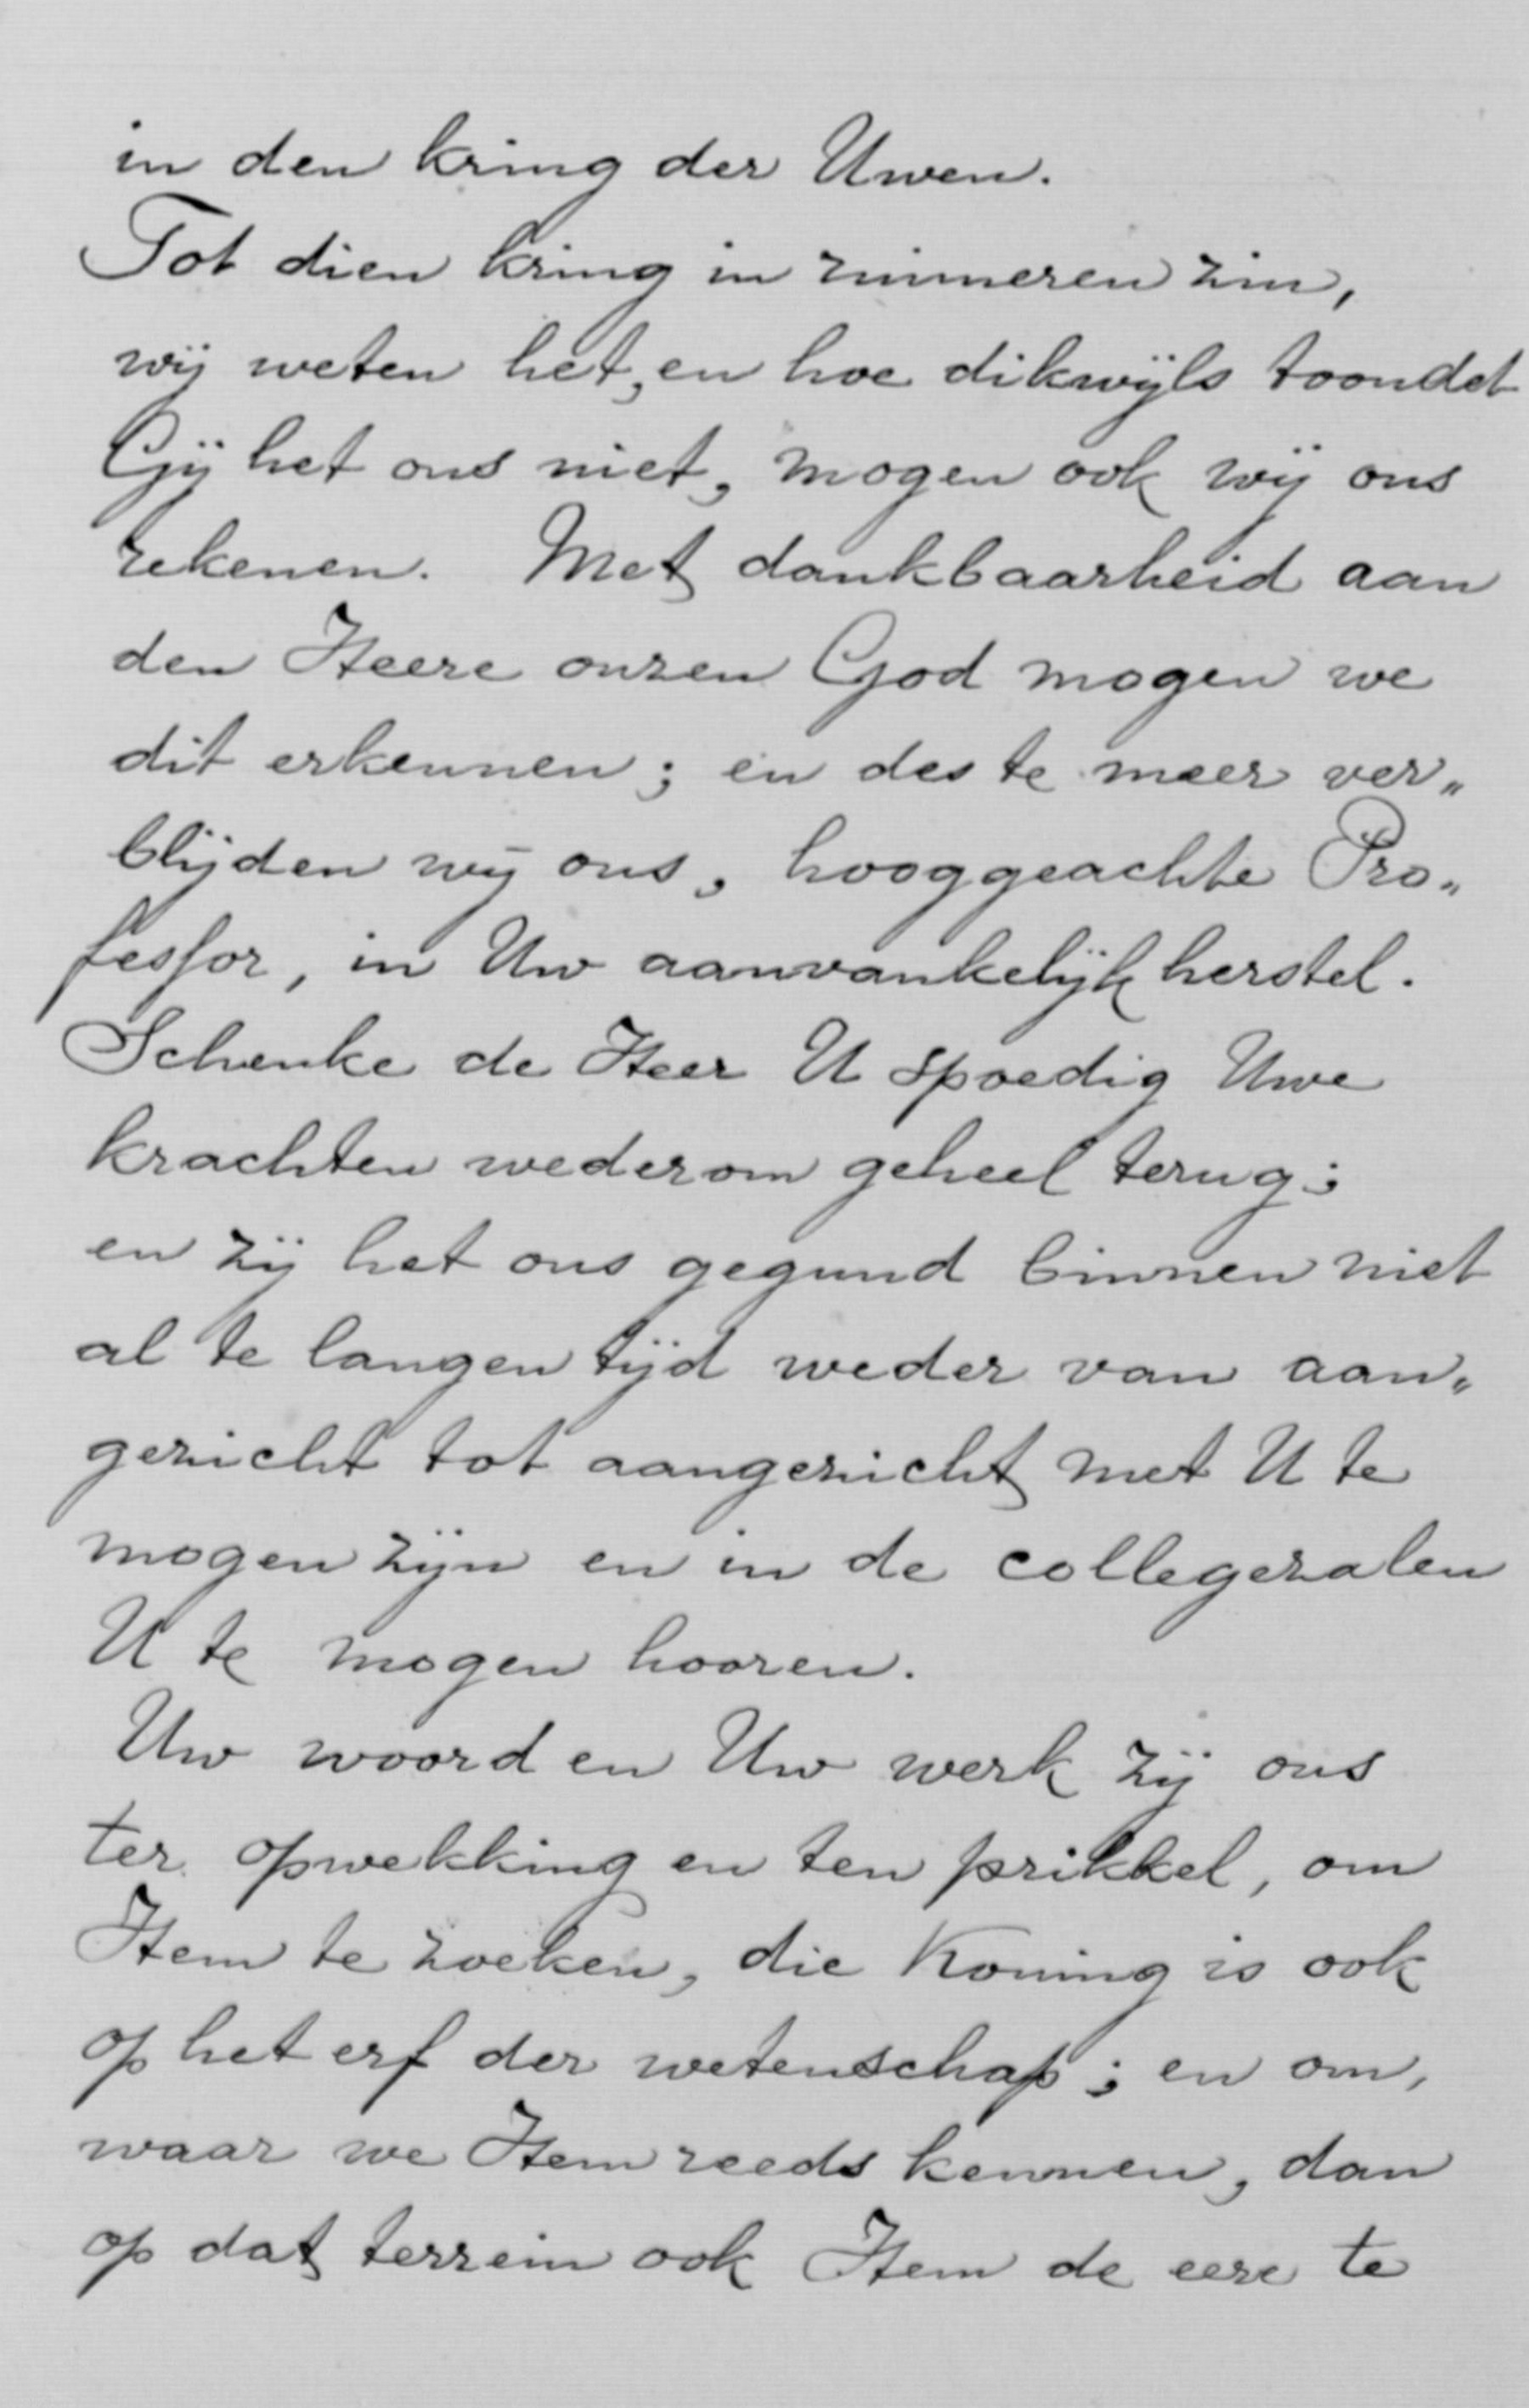 in den kring der Uwen.
Tot dien kring in ruimeren zin,
wij weten het, en hoe dikwijls toondet
Gij het ons niet, mogen ook wij ons
rekenen. Met dankbaarheid aan
den Heere onzen God mogen we
dit erkennen; en des te meer ver„
blijden wij ons, hooggeachte Pro„
fesfor, in Uw aanvankelijk herstel.
Schenke de Heer U spoedig Uwe
krachten wederom geheel terug;
en zij het ons gegund binnen niet
al te langen tijd weder van aan„
gezicht tot aangezicht met U te
mogen zijn en in de collegezalen
U te mogen hooren.
Uw woord en Uw werk zij ons
ter opwekking en ten prikkel, om
Hem te zoeken, die Koning is ook
op het erf der wetenschap; en om,
waar we Hem reeds kennen, dan
op dat terrein ook Hem de eere te